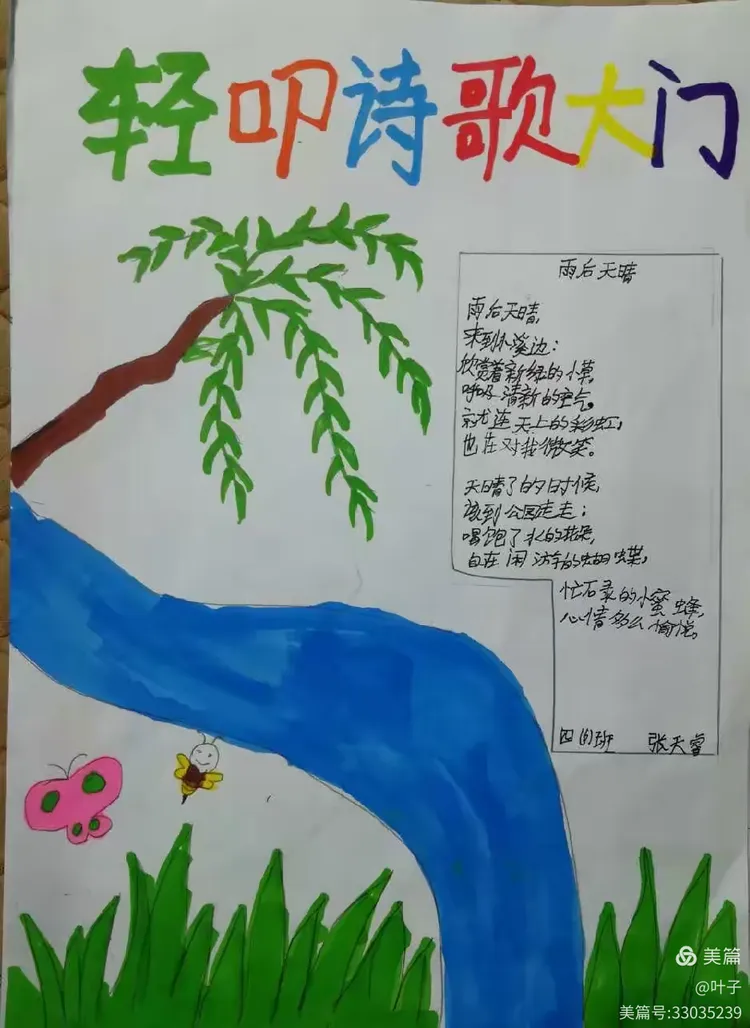 轻叩诗歌大门
雨后天晴
雨后天晴,
来到小溪边:
欣赏着新绿的小草,
呼吸清新的空气。
就连天上的彩虹,
也在对我微笑。
天晴了的时候,
该到公园走走:
喝饱了水的花朵,
自在闲游的蝴蝶,
忙碌的小蜜蜂,
心情多么愉悦。
四(6)班 张天睿
美篇
@叶子
美篇号:33035239